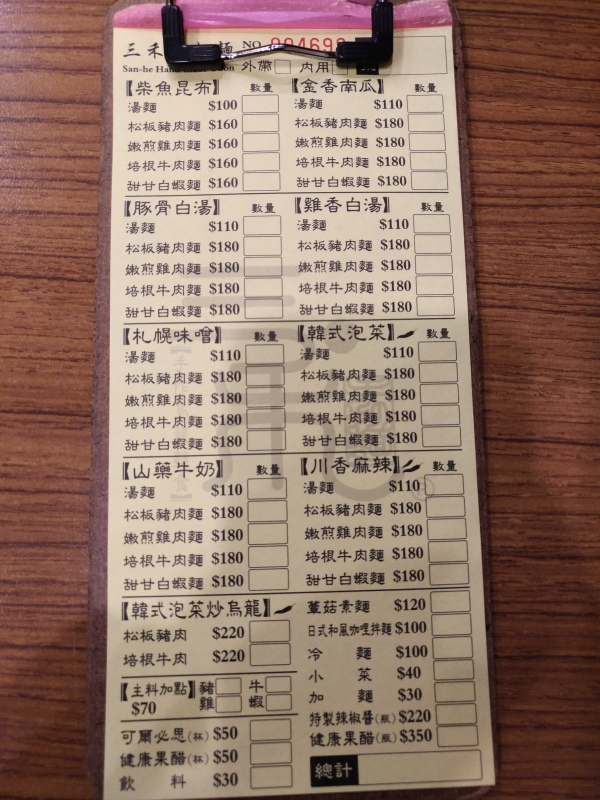 三禾 麵 NO.
San-he Hand 外帶 內用
【柴魚昆布】 數量
湯麵 $100
松板豬肉麵 $160
嫩煎雞肉麵 $160
培根牛肉麵 $160
甜甘白蝦麵 $160
【金香南瓜】 數量
湯麵 $110
松板豬肉麵 $180
嫩煎雞肉麵 $180
培根牛肉麵 $180
甜甘白蝦麵 $180
【豚骨白湯】 數量
湯麵 $110
松板豬肉麵 $180
嫩煎雞肉麵 $180
培根牛肉麵 $180
甜甘白蝦麵 $180
【雞香白湯】 數量
湯麵 $110
松板豬肉麵 $180
嫩煎雞肉麵 $180
培根牛肉麵 $180
甜甘白蝦麵 $180
【札幌味噌】 數量
湯麵 $110
松板豬肉麵 $180
嫩煎雞肉麵 $180
培根牛肉麵 $180
甜甘白蝦麵 $180
【韓式泡菜】 數量
湯麵 $110
松板豬肉麵 $180
嫩煎雞肉麵 $180
培根牛肉麵 $180
甜甘白蝦麵 $180
【山藥牛奶】 數量
湯麵 $110
松板豬肉麵 $180
嫩煎雞肉麵 $180
培根牛肉麵 $180
甜甘白蝦麵 $180
【川香麻辣】 數量
湯麵 $110
松板豬肉麵 $180
嫩煎雞肉麵 $180
培根牛肉麵 $180
甜甘白蝦麵 $180
【韓式泡菜炒烏龍】
松板豬肉 $220
培根牛肉 $220
【主料加點】 豬 牛
$70 雞 蝦
可爾必思(杯) $50
健康果醋(杯) $50
飲料 $30
蕈菇素麵 $120
日式和風咖哩拌麵 $100
冷麵 $100
小菜 $40
加麵 $30
特製辣椒醬(瓶) $220
健康果醋(瓶) $350
總計